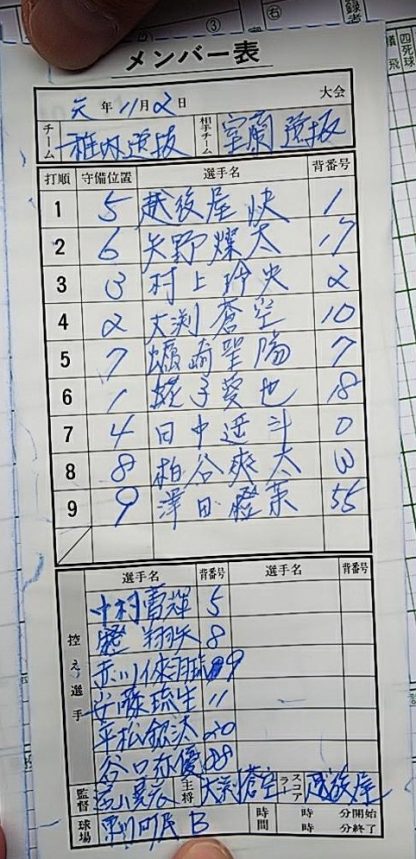 ③
右
録者
四死球
飛
メンバー表
元年 11月 2日 大会
チーム 稚内選抜 相手チーム 室蘭選抜
打順 守備位置 選手名 背番号
1 5 越後屋 快 1
2 6 矢野燦太 17
3 3 村上 央 2
4 2 大渕蒼空 10
5 7 聖陽 7
6 1 蛯子 也 18
7 4 田中 斗 0
8 8 柏谷爽太 3
9 9 澤田橙茉 55
控え選手 選手名 背番号 選手名 背番号
中村 輝 5
翔矢 8
赤川 9
安藤琉生 11
平松 汰 20
谷口 優 28
監督 主将 大渕蒼空 スコアラー 越後屋
球場 町民 B 時間 時 分開始
時 分終了